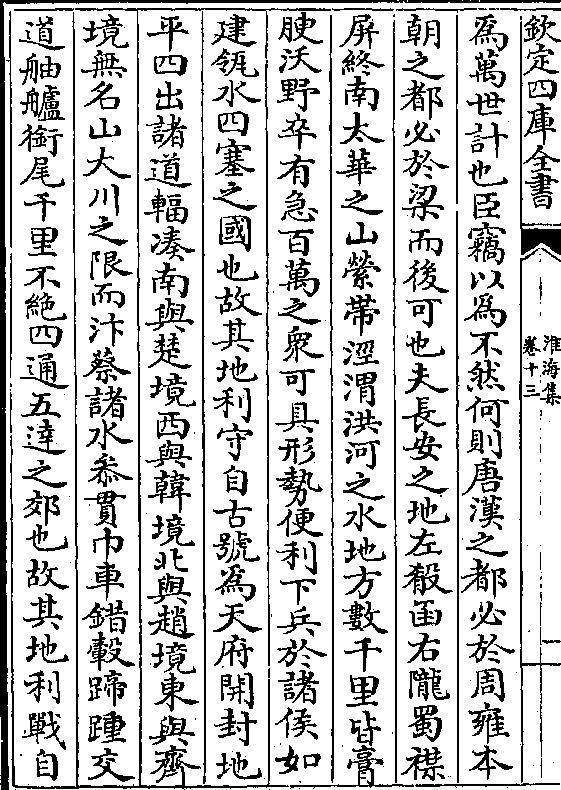 欽定四庫全書
淮海集
卷十三
一
爲萬世計也臣竊以爲不然何則唐漢之都必於周雍本
朝之都必於梁而後可也夫長安之地左殽函右隴蜀襟
屏終南太華之山縈帶涇渭洪河之水地方數千里皆膏
腴沃野卒有急百萬之衆可具形勢便利下兵於諸侯如
建瓴水四塞之國也故其地利守自古號爲天府開封地
平四出諸道輻湊南與楚境西與韓境北與趙境東與齊
境無名山大川之限而汴蔡諸水叅貫巾車錯轂蹄踵交
道舳艫銜尾千里不絶四通五逹之郊也故其地利戰自